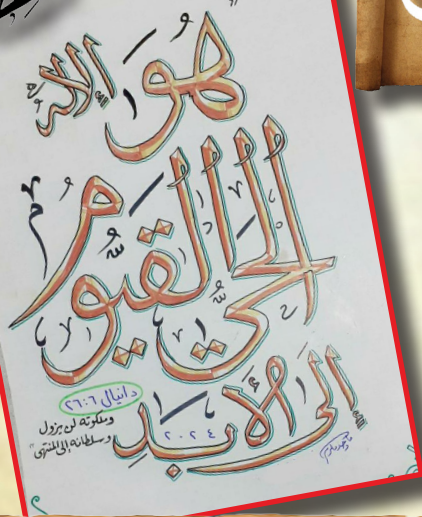 هُوَ الإلهُ
الحَيُّ القَيُّومُ
إلى الأَبَدِ
٢٠٢٤
دانيال ٢٦:٦
وملكوته لن يزول
وسلطانه إلى المنتهى"